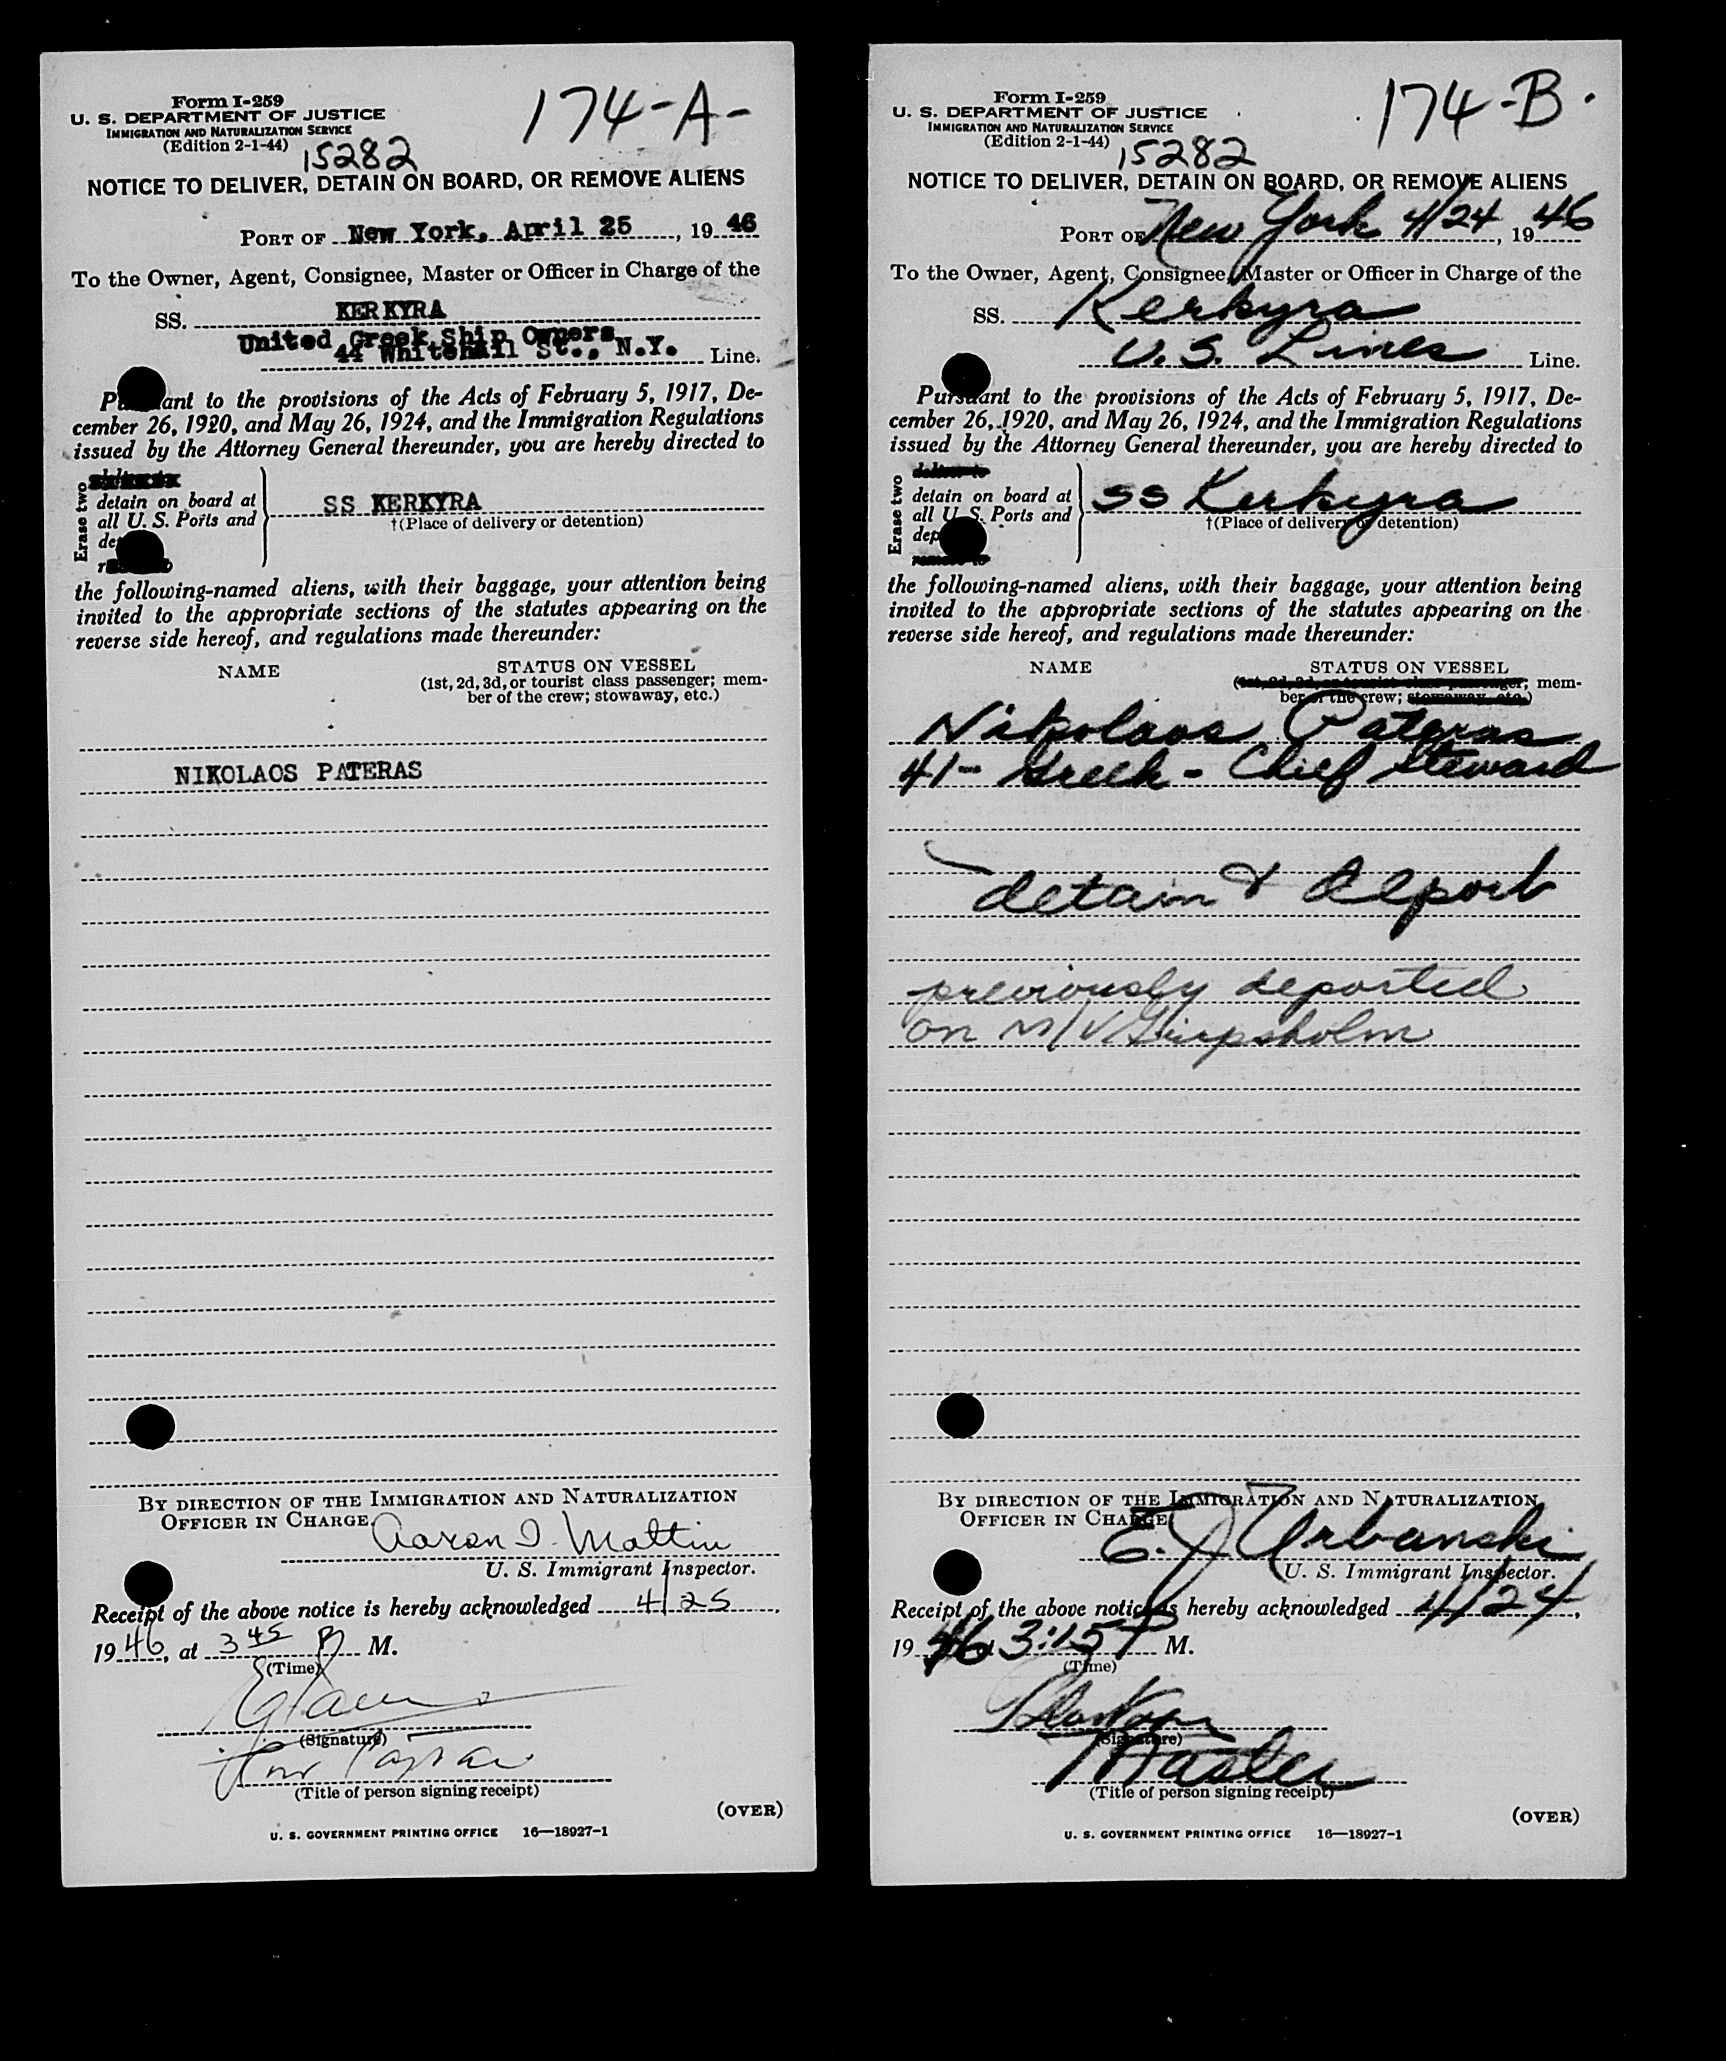 174-A-
Form I-259
U. S. DEPARTMENT OF JUSTICE
IMMIGRATION AND NATURALIZATION SERVICE
(Edition 2-1-44)
15282
NOTICE TO DELIVER, DETAIN ON BOARD, OR REMOVE ALIENS
PORT OF New York, April 25, 19 46
To the Owner, Agent, Consignee, Master or Officer in Charge of the
SS. KERKYRA
United Greek Ship Owners
44 Whitehall St., N.Y. Line.
Pursuant to the provisions of the Acts of February 5, 1917, De-
cember 26, 1920, and May 26, 1924, and the Immigration Regulations
issued by the Attorney General thereunder, you are hereby directed to
Erase two
detain on board at
all U. S. Ports and
SS KERKYRA
†(Place of delivery or detention)
the following-named aliens, with their baggage, your attention being
invited to the appropriate sections of the statutes appearing on the
reverse side hereof, and regulations made thereunder:
NAME
STATUS ON VESSEL
(1st, 2d, 3d, or tourist class passenger; mem-
ber of the crew; stowaway, etc.)
NIKOLAOS PATERAS
BY DIRECTION OF THE IMMIGRATION AND NATURALIZATION
OFFICER IN CHARGE.
Aaron I. Mattin
U. S. Immigrant Inspector.
Receipt of the above notice is hereby acknowledged 4/25,
19 46, at 3 45 P M.
(Time)
(Signature)
(Title of person signing receipt)
(OVER)
U. S. GOVERNMENT PRINTING OFFICE 16—18927-1
174-B.
Form I-259
U. S. DEPARTMENT OF JUSTICE
IMMIGRATION AND NATURALIZATION SERVICE
(Edition 2-1-44)
15282
NOTICE TO DELIVER, DETAIN ON BOARD, OR REMOVE ALIENS
PORT OF New York 4/24, 19 46
To the Owner, Agent, Consignee, Master or Officer in Charge of the
SS. Kerkyra
U. S. Lines Line.
Pursuant to the provisions of the Acts of February 5, 1917, De-
cember 26, 1920, and May 26, 1924, and the Immigration Regulations
issued by the Attorney General thereunder, you are hereby directed to
Erase two
deliver to
detain on board at
all U. S. Ports and
remove to
SS Kerkyra
†(Place of delivery or detention)
the following-named aliens, with their baggage, your attention being
invited to the appropriate sections of the statutes appearing on the
reverse side hereof, and regulations made thereunder:
NAME
STATUS ON VESSEL
(1st, 2d, 3d, or tourist class passenger; mem-
ber of the crew; stowaway, etc.)
Nikolaos Pateras
41- Greek - Chief Steward
detain & deport
previously deported
on M/V Gripsholm
BY DIRECTION OF THE IMMIGRATION AND NATURALIZATION
OFFICER IN CHARGE.
E. J. Urbanski
U. S. Immigrant Inspector.
Receipt of the above notice is hereby acknowledged 4/24,
19 46 3:15 P M.
(Time)
(Signature)
Master
(Title of person signing receipt)
(OVER)
U. S. GOVERNMENT PRINTING OFFICE 16—18927-1